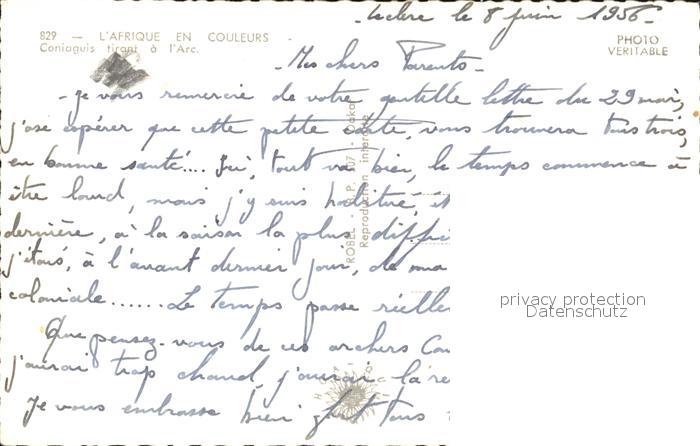 Leclerc le 8 juin 1956
829 — L'AFRIQUE EN COULEURS -
Coniaguis tirant à l'Arc.
PHOTO
VERITABLE
- Mes chers Parents -
- Je vous remercie de votre gentille lettre du 29 mai,
j'ose espérer que cette petite carte, vous trouvera tous trois,
en bonne santé.... Ici, tout va bien, le temps commence à
être lourd, mais j'y suis habitué, et
dernière, à la saison la plus diffici
j'étais, à l'avant dernier jour, de ma
coloniale...... Le temps passe réelle
Que pensez-vous de ces archers Con
j'aurai trop chaud, j'aurai la re
Je vous embrasse bien fort tous
Reproduction interdite
privacy protection
Datenschutz